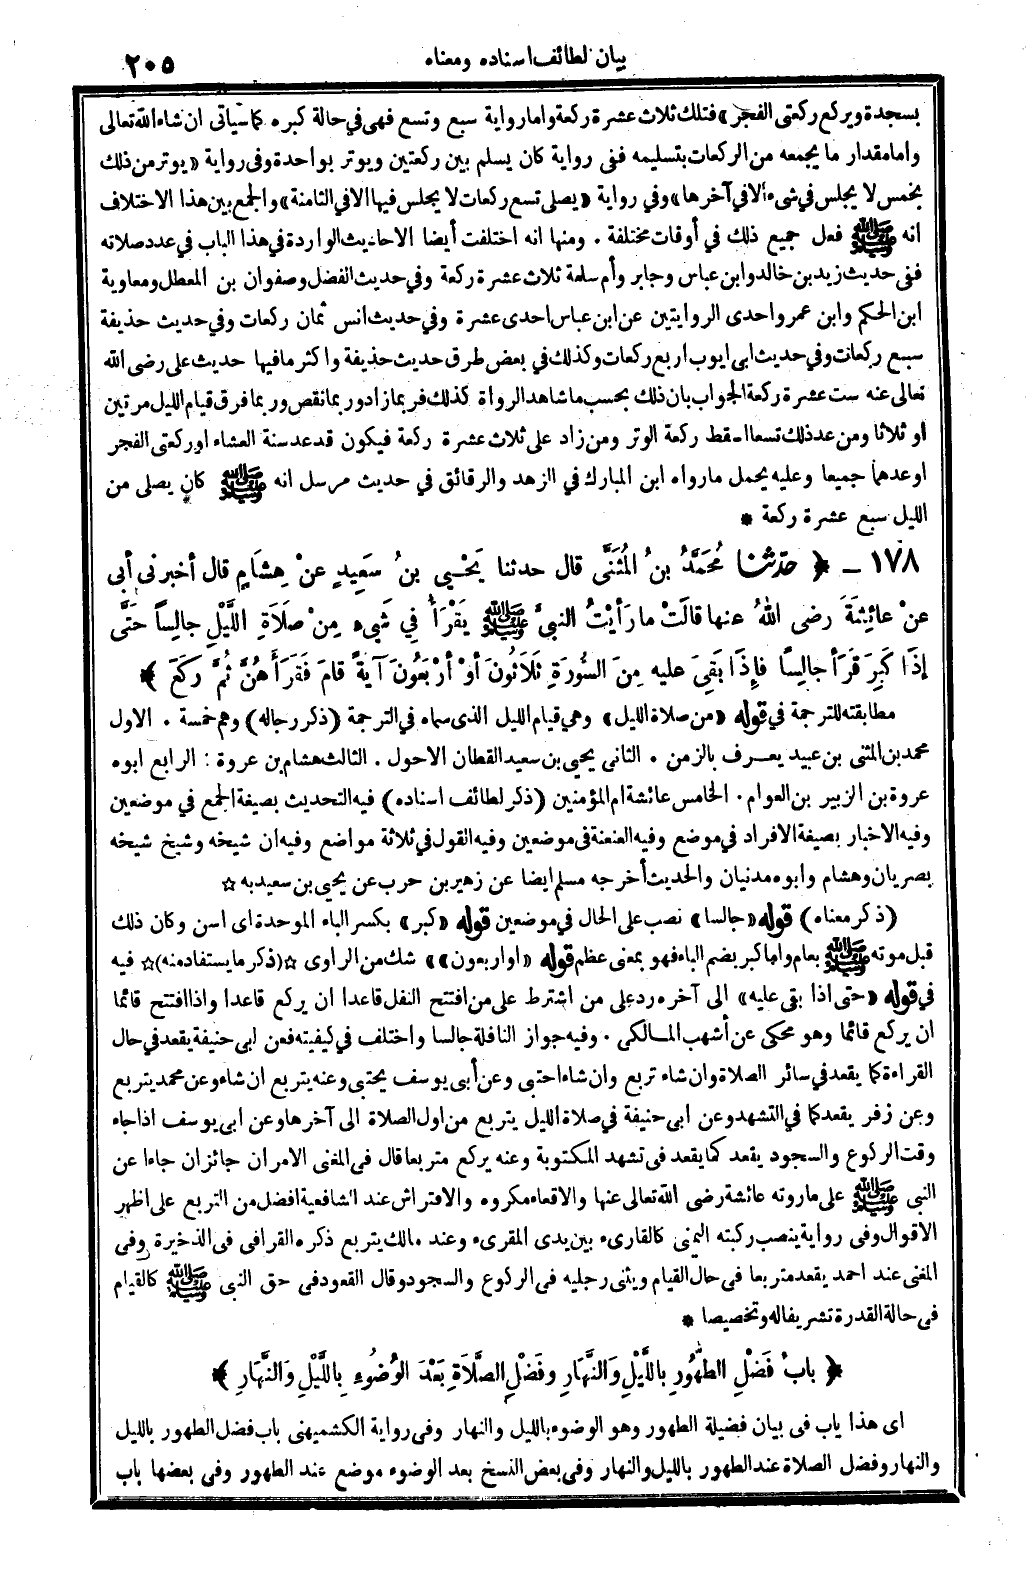 بيان لطائف اسناده ومعناه ٢٠٥
بسجدة ويركع ركعتى الفجر» فتلك ثلاث عشرة ركعة واما رواية سبع وتسع فهى في حالة كبره كما سيأتى ان شاء الله تعالى
واما مقدار ما يجمعه من الركعات بتسليمه ففى رواية كان يسلم بين ركعتين ويوتر بواحدة وفى رواية «يوتر من ذلك
بخمس لا يجلس في شىء الا في آخرها» وفي رواية «يصلى تسع ركعات لا يجلس فيها الا في الثامنة» والجمع بين هذا الاختلاف
انه ﷺ فعل جميع ذلك في أوقات مختلفة . ومنها انه اختلفت أيضا الاحاديث الواردة في هذا الباب في عدد صلاته
ففى حديث زيد بن خالد وابن عباس وجابر وأم سلمة ثلاث عشرة ركعة وفي حديث الفضل وصفوان بن المعطل ومعاوية
ابن الحكم وابن عمر واحدى الروايتين عن ابن عباس احدى عشرة وفي حديث انس ثمان ركعات وفي حديث حذيفة
سبع ركعات وفي حديث ابى ايوب اربع ركعات وكذلك في بعض طرق حديث حذيفة واكثر ما فيها حديث على رضى الله
تعالى عنه ست عشرة ركعة الجواب بان ذلك بحسب ما شاهد الرواة كذلك فربما زاد وربما نقص وربما فرق قيام الليل مرتين
او ثلاثا ومن عد ذلك تسعا اسقط ركعة الوتر ومن زاد على ثلاث عشرة ركعة فيكون قد عد سنة العشاء او ركعتى الفجر
او عدهما جميعا وعليه يحمل ما رواه ابن المبارك في الزهد والرقائق في حديث مرسل انه ﷺ كان يصلى من
الليل سبع عشرة ركعة *
١٧٨ ـ ﴿ حدثنا مُحَمَّدُ بنُ المُثَنَّى قال حدثنا يَحْيى بنُ سَعِيدٍ عنْ هِشَامٍ قال أخبرنى أبى
عنْ عائِشَةَ رضى اللهُ عنها قالَتْ ما رَأيْتُ النبىَّ ﷺ يَقْرَأُ فِي شَىْءٍ مِنْ صَلاَةِ اللَّيْلِ جالِسًا حَتَّى
إذَا كَبِرَ قَرَأ جالِسًا فإذَا بَقِىَ عليه مِنَ السُّورَةِ ثَلاَثُونَ أوْ أرْبَعُونَ آيَةً قامَ فَقَرَأهُنَّ ثُمَّ رَكَعَ ﴾
مطابقته للترجمة في قوله «من صلاة الليل» وهي قيام الليل الذى سماه في الترجمة (ذكر رجاله) وهم خمسة . الاول
محمد بن المثنى بن عبيد يعرف بالزمن . الثانى يحيى بن سعيد القطان الاحول . الثالث هشام بن عروة : الرابع ابوه
عروة بن الزبير بن العوام . الخامس عائشة ام المؤمنين (ذكر لطائف اسناده) فيه التحديث بصيغة الجمع في موضعين
وفيه الاخبار بصيغة الافراد في موضع وفيه العنعنة فى موضعين وفيه القول في ثلاثة مواضع وفيه ان شيخه وشيخ شيخه
بصريان وهشام وابوه مدنيان والحديث أخرجه مسلم ايضا عن زهير بن حرب عن يحيى بن سعيد به ☆
(ذكر معناه) قوله «جالسا» نصب على الحال في موضعين قوله «كبر» بكسر الباء الموحدة اى اسن وكان ذلك
قبل موته ﷺ بعام واما كبر بضم الباء فهو بمعنى عظم قوله «او اربعون»» شك من الراوى ☆(ذكر ما يستفاد منه)☆ فيه
في قوله «حتى اذا بقى عليه» الى آخره رد على من اشترط على من افتتح النفل قاعدا ان يركع قاعدا واذا افتتح قائما
ان يركع قائما وهو محكى عن أشهب المالكى . وفيه جواز النافلة جالسا واختلف في كيفيته فعن ابى حنيفة يقعد في حال
القراءة كما يقعد في سائر الصلاة وان شاء تربع وان شاء احتبى وعن أبى يوسف يحتبى وعنه يتربع ان شاء وعن محمد يتربع
وعن زفر يقعد كما في التشهد وعن ابى حنيفة في صلاة الليل يتربع من اول الصلاة الى آخرها وعن ابى يوسف اذا جاء
وقت الركوع والسجود يقعد كما يقعد فى تشهد المكتوبة وعنه يركع متربعا قال فى المغنى الامران جائزان جاءا عن
النبى ﷺ على ما روته عائشة رضى الله تعالى عنها والاقعاء مكروه والافتراش عند الشافعية افضل من التربع على اظهر
الاقوال وفى رواية ينصب ركبته اليمنى كالقارىء بين يدى المقرىء وعند مالك يتربع ذكره القرافى فى الذخيرة وفى
المغنى عند احمد يقعد متربعا فى حال القيام ويثنى رجليه فى الركوع والسجود وقال القعود فى حق النبى ﷺ كالقيام
فى حالة القدرة تشريفا له وتخصيصا *
﴿ بابُ فَضْلِ الطُّهُورِ بِاللَّيْلِ وَالنَّهَارِ وفَضْلِ الصَّلاَةِ بَعْدَ الوُضُوءِ بِاللَّيْلِ وَالنَّهَارِ ﴾
اى هذا باب فى بيان فضيلة الطهور وهو الوضوء بالليل والنهار وفى رواية الكشميهنى باب فضل الطهور بالليل
والنهار وفضل الصلاة عند الطهور بالليل والنهار وفى بعض النسخ بعد الوضوء موضع عند الطهور وفى بعضها باب